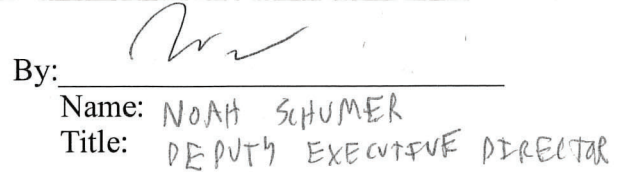 By:
Name: NOAH SCHUMER
Title: DEPUTY EXECUTIVE DIRECTOR